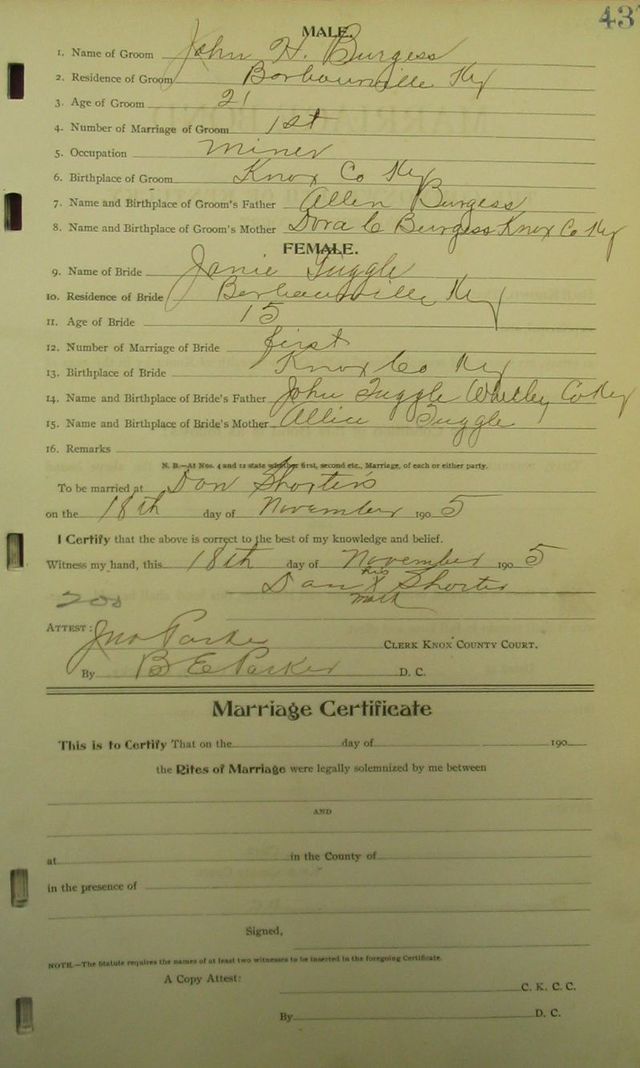 437
MALE.
1. Name of Groom John H. Burgess
2. Residence of Groom Barbourville Ky
3. Age of Groom 21
4. Number of Marriage of Groom 1st
5. Occupation miner
6. Birthplace of Groom Knox Co Ky
7. Name and Birthplace of Groom's Father Allen Burgess
8. Name and Birthplace of Groom's Mother Dora C Burgess Knox Co Ky
FEMALE.
9. Name of Bride Janie Tuggle
10. Residence of Bride Barbourville Ky
11. Age of Bride 15
12. Number of Marriage of Bride first
13. Birthplace of Bride Knox Co Ky
14. Name and Birthplace of Bride's Father John Tuggle Whitley Co Ky
15. Name and Birthplace of Bride's Mother Allice Tuggle
16. Remarks
N. B.—At Nos. 4 and 12 state whether first, second etc., Marriage, of each or either party.
To be married at Dan Shorter's
on the 18th day of November 190 5
I Certify that the above is correct to the best of my knowledge and belief.
Witness my hand, this 18th day of November 190 5
his
Dan X Shorter
mark
200
ATTEST: Jno Parker CLERK KNOX COUNTY COURT.
By B E Parker D. C.
Marriage Certificate
This is to Certify That on the day of 190
the Rites of Marriage were legally solemnized by me between
AND
at in the County of
in the presence of
Signed,
NOTE.—The Statute requires the names of at least two witnesses to be inserted in the foregoing Certificate.
A Copy Attest:
C. K. C. C.
By D. C.